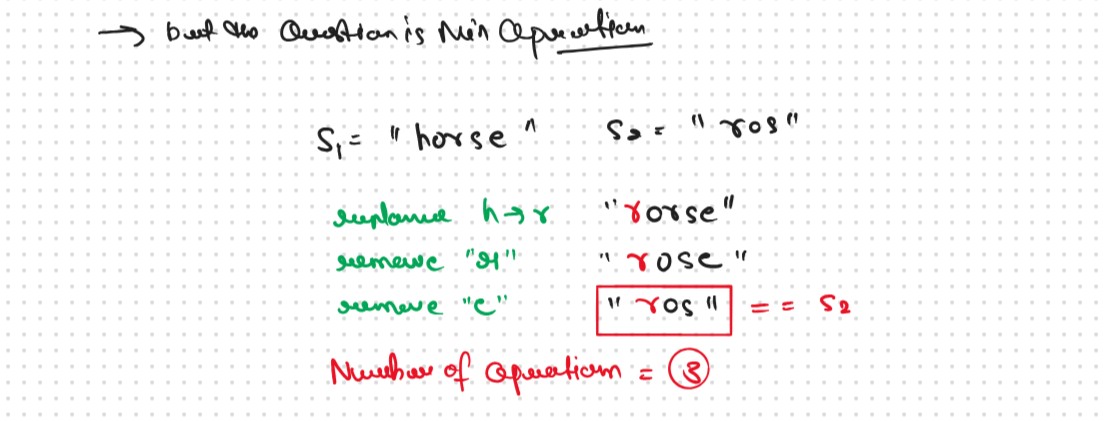 → but the Question is Min Operation
S1 = "horse" S2 = "ros"
replance h→r "rorse"
remove "r" "rose"
remove "e" "ros" == S2
Number of operation = 3